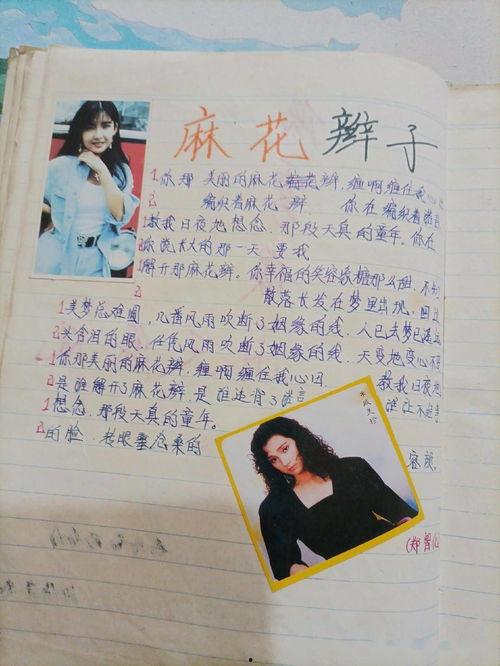 麻花辫子
1你那 美丽的麻花辫,缠啊缠住我心
2 编织着麻花 辫. 你在编织着谎言
1教我日夜地想念.那段天真的童年。你在
2你说长大的那一天 要我
1解开那麻花辫。你幸福的笑容像糖那么甜.不
2 散落长发在梦里出现.
1美梦总难圆,几番风雨吹断了姻缘的线.人已去梦已
2头含泪的眼.任凭风雨吹断了姻缘的线.天变地变心不
1你那美丽的麻花辫,缠啊缠住我心田. 教我日夜
2是谁解开了麻花辫.是谁违背了誓言 谁让不
1想念.那段天真的童年。
2的脸.转眼整沧桑的 容颜.
(郑智化